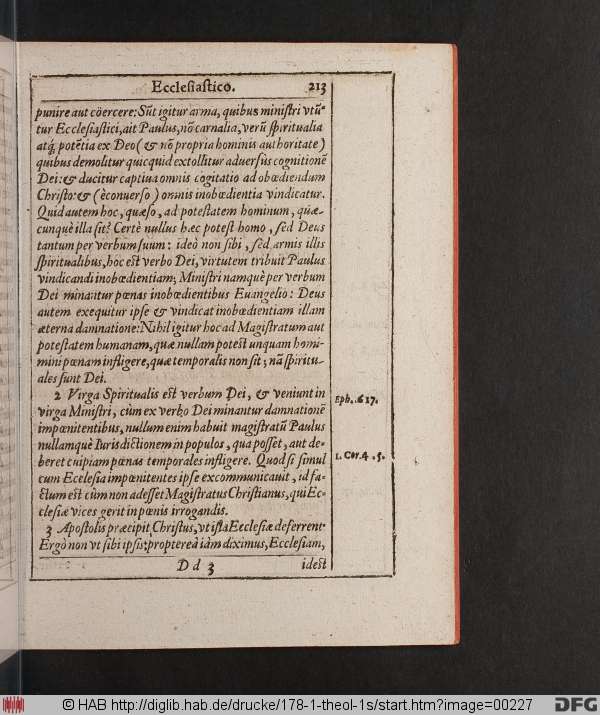 Ecclesiastico. 213
punire aut cöercere: Sũt igitur arma, quibus ministri vtũ-
tur Ecclesiastici, ait Paulus, nõ carnalia, verũ spiritualia
atq́; potẽtia ex Deo (& nõ propria hominis authoritate)
quibus demolitur quicquid extollitur aduersùs cognitionẽ
Dei: & ducitur captiua omnis cogitatio ad obœdiendum
Christo: & (èconuerso) omnis inobœdientia vindicatur.
Quid autem hoc, quæso, ad potestatem hominum, quæ-
cunquè illa sit? Certè nullus hæc potest homo, sed Deus
tantum per verbum suum: ideò non sibi, sed armis illis
spiritualibus, hoc est verbo Dei, virtutem tribuit Paulus
vindicandi inobœdientiam; Ministri namquè per verbum
Dei minantur pœnas inobœdientibus Euangelio: Deus
autem exequitur ipse & vindicat inobœdientiam illam
æterna damnatione: Nihil igitur hoc ad Magistratum aut
potestatem humanam, quæ nullam potest unquam homi-
mini pœnam infligere, quæ temporalis non sit; nã spiritu-
ales sunt Dei.
2 Virga Spiritualis est verbum Dei, & veniunt in
virga Ministri, cùm ex verbo Dei minantur damnationẽ
impœnitentibus, nullum enim habuit magistratũ Paulus
nullamquè Iurisdictionem in populos, qua posset, aut de-
beret cuipiam pœnas temporales infligere. Quod si simul
cum Ecclesia impœnitentes ipse excommunicauit, id fa-
ctum est cùm non adesset Magistratus Christianus, qui Ec-
clesiæ vices gerit in pœnis irrogandis.
3 Apostolis præcipit Christus, vt ista Ecclesiæ deferrent
Ergò non vt sibi ipsis: proptereà iàm diximus, Ecclesiam,
D d 3 idest
Eph. 6 17.
1. Cor. 4. 5.
© HAB http://diglib.hab.de/drucke/178-1-theol-1s/start.htm?image=00227
DFG